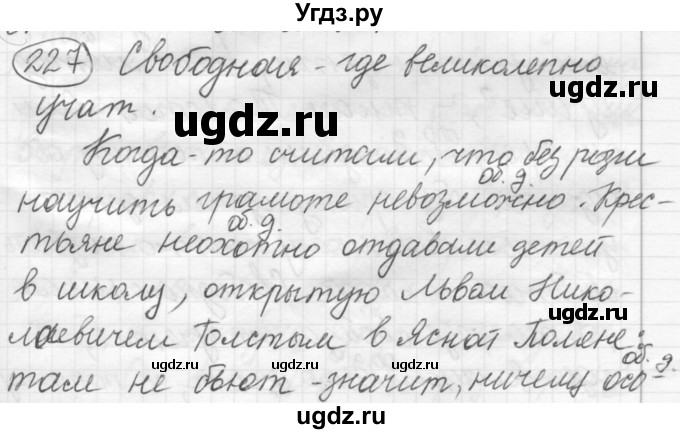 Угдз.ру
227 Свободная - где великолепно
учат.
ugdz.ru
ugdz.ru
ugdz.ru
Когда-то считали, что без розги
об. д.
научить грамоте невозможно. Крес-
об. д.
тьяне неохотно отдавали детей
ugdz.ru
ugdz.ru
в школу, открытую Львом Нико-
ugdz.ru
лаевичем Толстым в Ясной Поляне:
об. д.
ugdz.ru
ugdz.ru
там не бьют - значит, ничему осо-
ugdz.ru